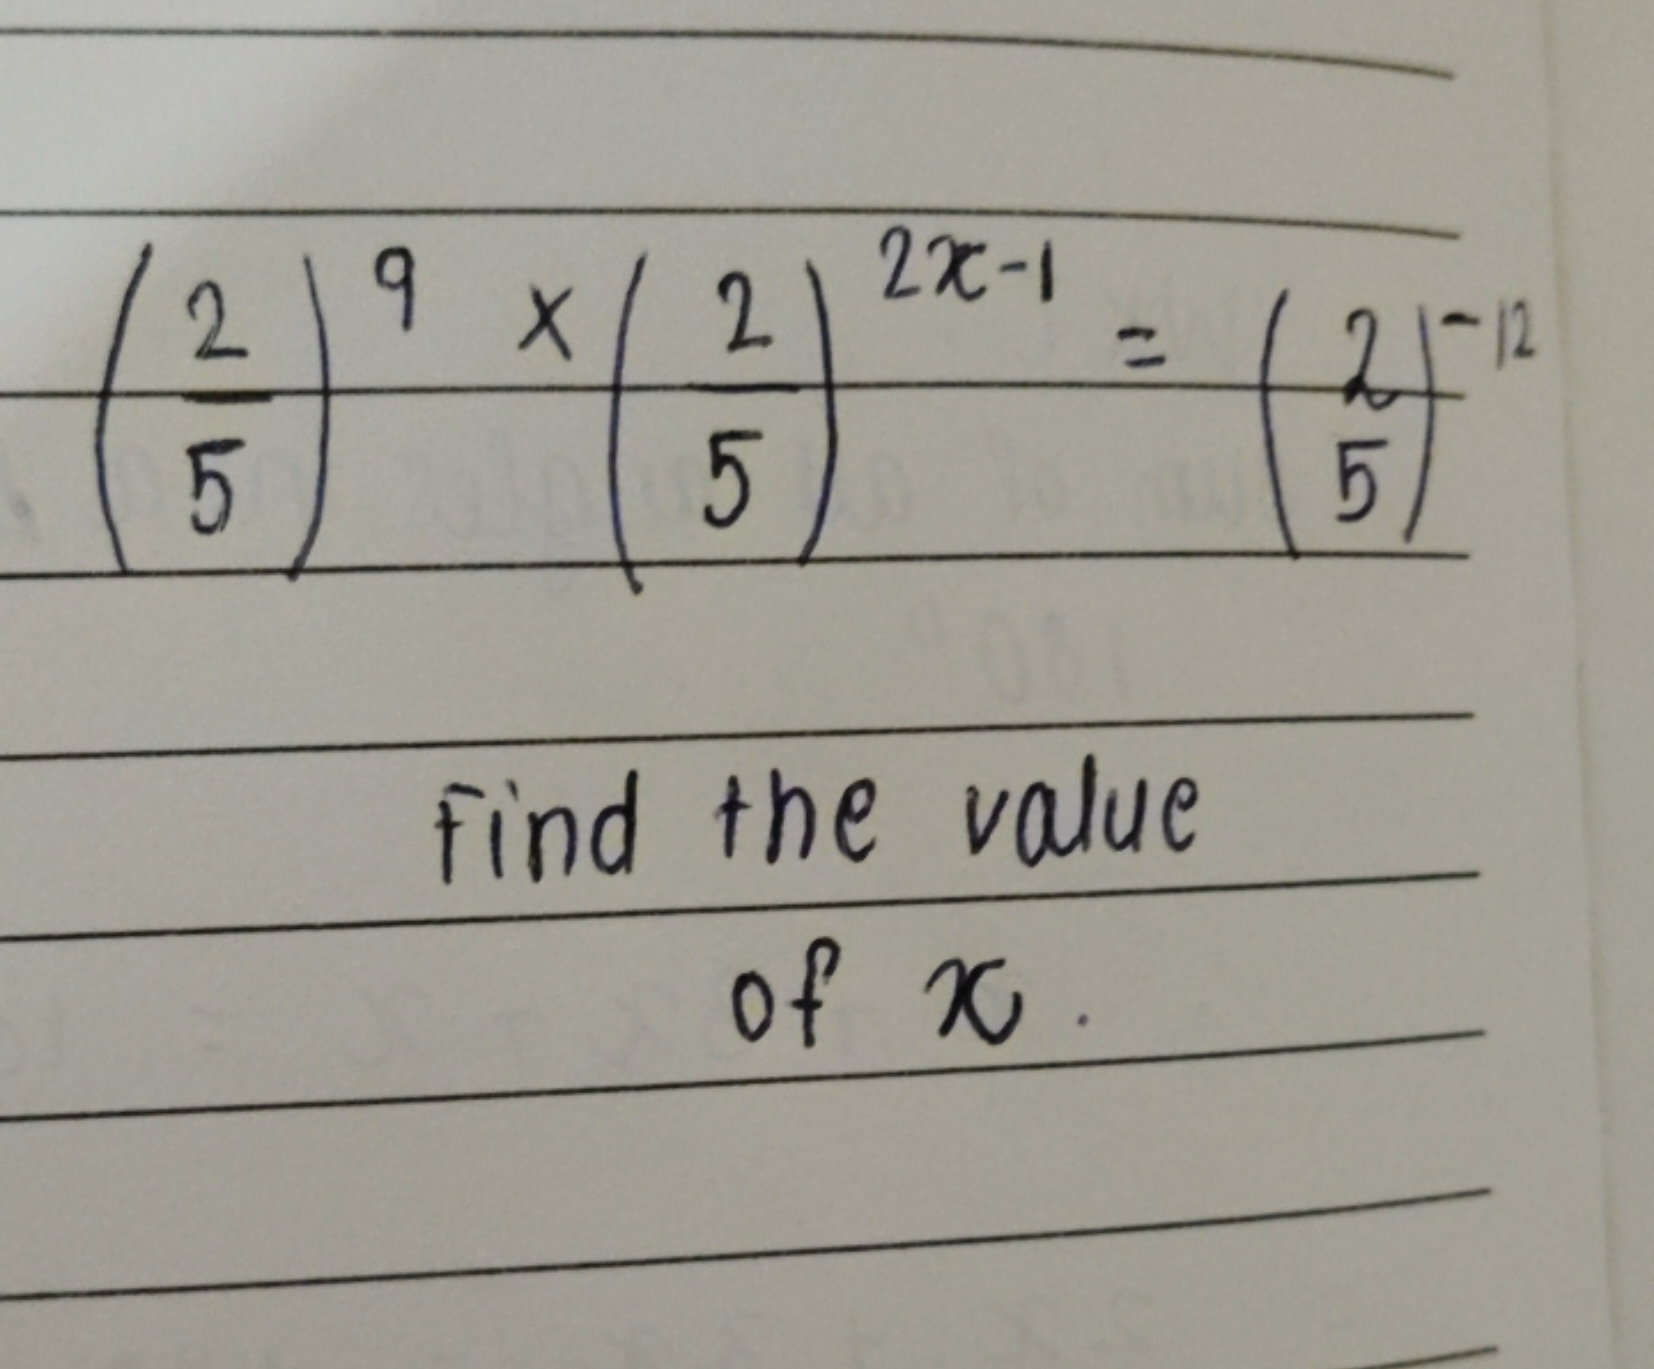 (2/5)^9 × (2/5)^2x-1 = (2/5)^-12
Find the value
of x.